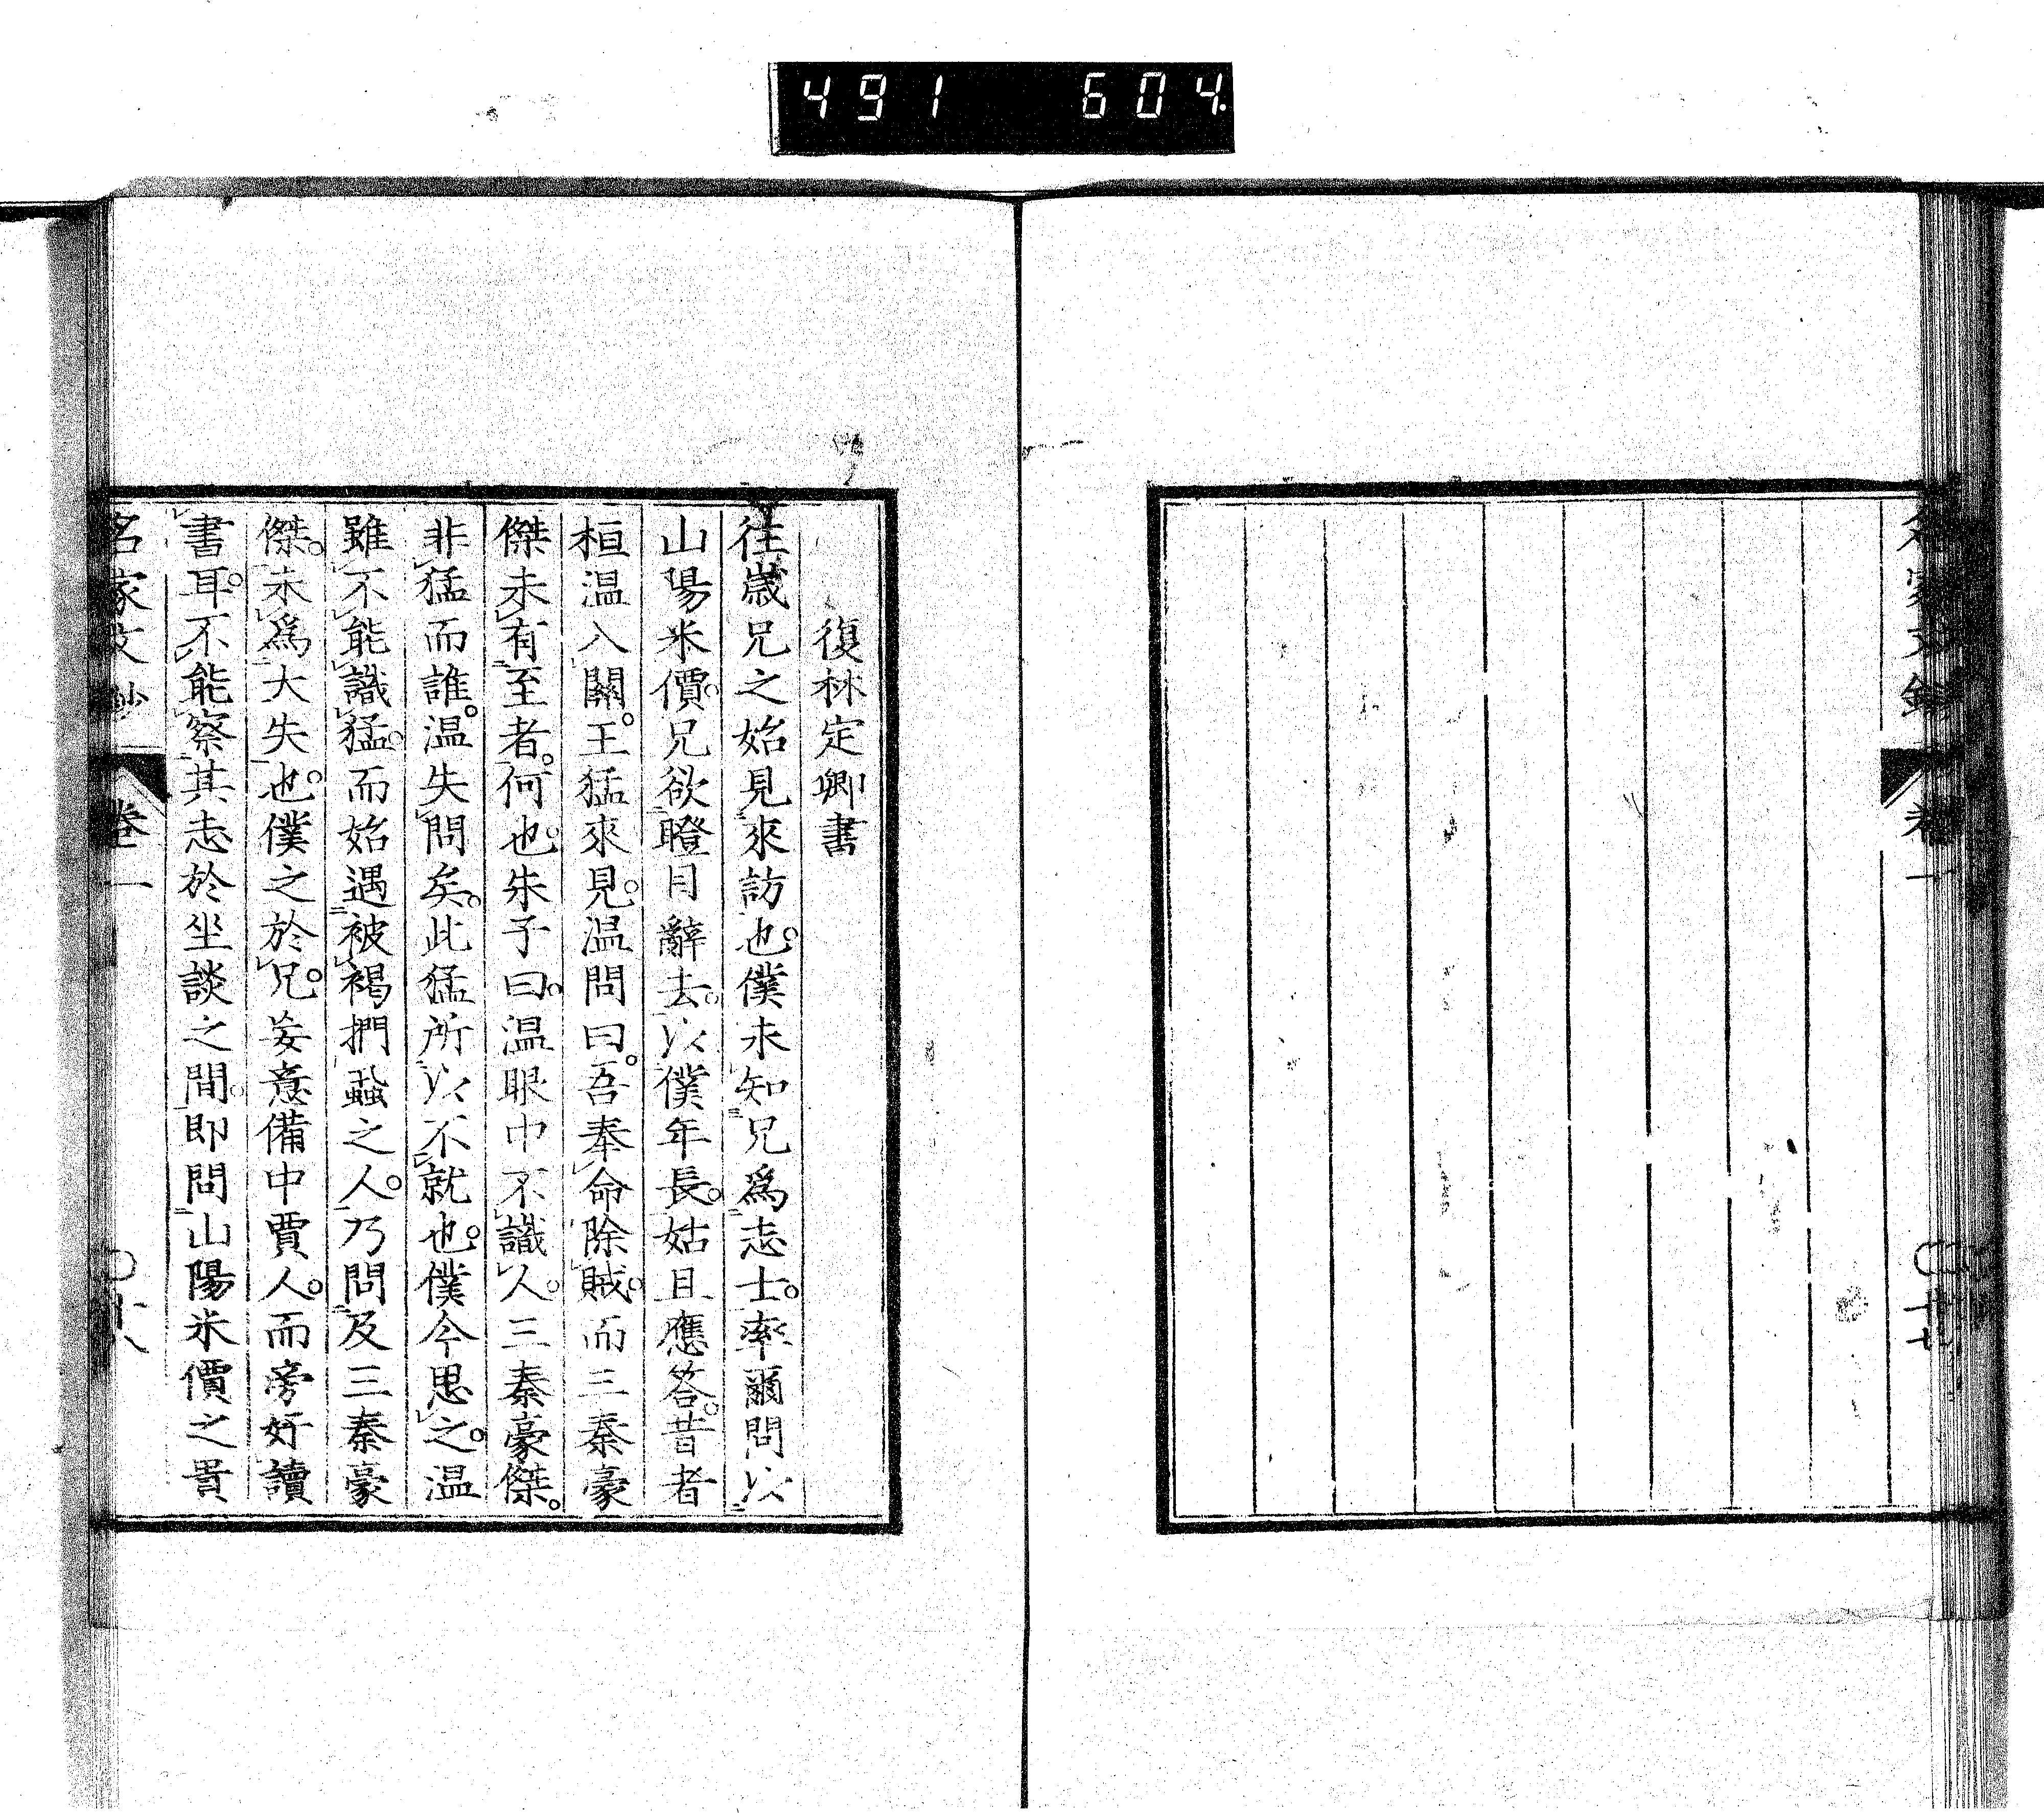 491 604
復林定卿書
往歲兄之始見來訪也。僕未知兄爲志士。率爾問以
山陽米價。兄欲瞪目辭去。以僕年長。姑且應答。昔者
桓温入關。王猛來見。温問曰。吾奉命除賊。而三秦豪
傑未有至者。何也。朱子曰。温眼中不識人。三秦豪傑。
非猛而誰。温失問矣。此猛所以不就也。僕今思之。温
雖不能識猛。而始遇被褐捫蝨之人。乃問及三秦豪
傑。未爲大失也。僕之於兄。妄意備中賈人。而旁好讀
書耳。不能察其志於坐談之間。即問山陽米價之貴
名家文鈔 卷一